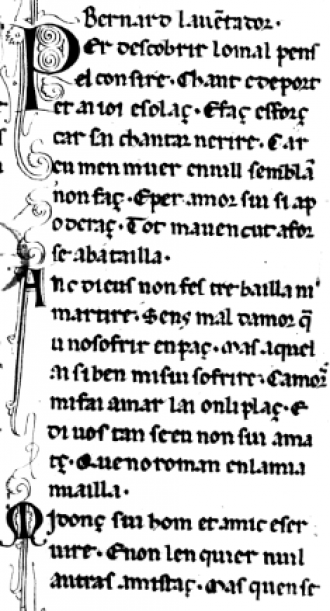 Bernard lauētador.
Per descobrir lomal pens
el consire. Chant edeport
et ai ioi esolaç. Efaç esforç
car sai chantar nerire. Car
eu men muer enuill semblā
non faç. Eper amor sui si ap
oderaç. Tot mauencut afor
se abatailla.
Anc dieus non fes trebailla ni
martire. Sens mal damor q̄
u nosofrir enpaç. Mas aquel
ai siben misui sofrire. Camor
mi fai amar lai onli plaç. E
di uos tan seeu non sui ama
tç. Que noroman enlamia
miailla.
Midonç sui hom et amic eser
uire. Enon len quier nuil
autras amistaç. Mas quen se